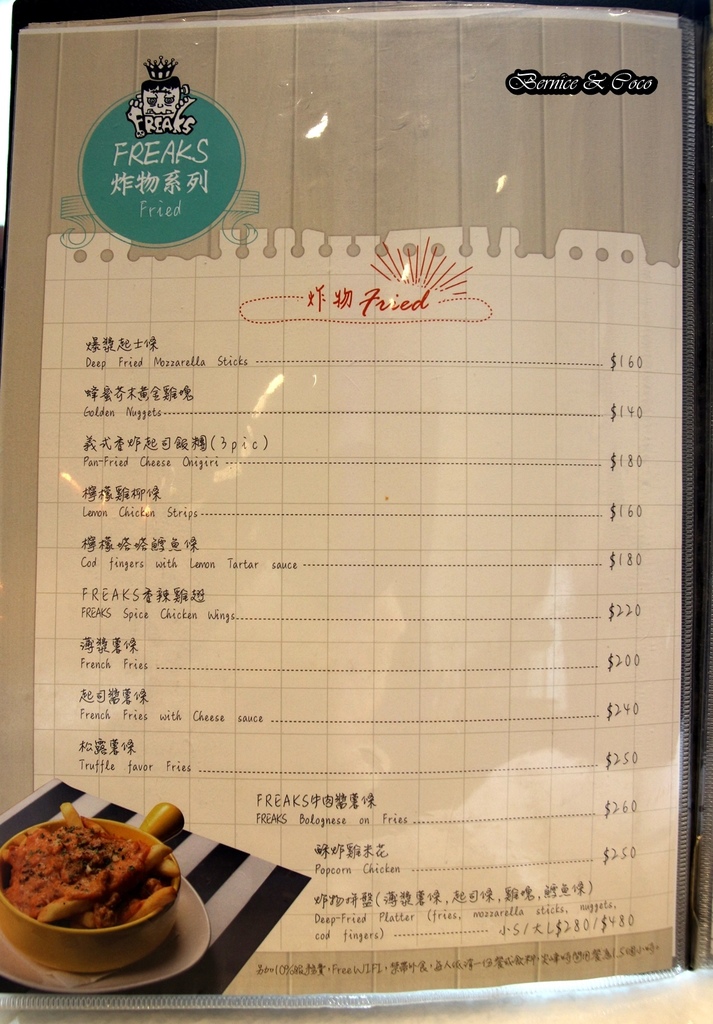 Bernice & Coco
FREAKS
FREAKS
炸物系列
Fried
炸物 Fried
爆漿起士條
Deep Fried Mozzarella Sticks $160
蜂蜜芥末黃金雞塊
Golden Nuggets $140
義式香炸起司飯糰(3pic)
Pan-Fried Cheese Onigiri $180
檸檬雞柳條
Lemon Chicken Strips $160
檸檬塔塔鱈魚條
Cod fingers with Lemon Tartar sauce $180
FREAKS香辣雞翅
FREAKS Spice Chicken Wings $220
薄漿薯條
French Fries $200
起司醬薯條
French Fries with Cheese sauce $240
松露薯條
Truffle favor Fries $250
FREAKS牛肉醬薯條
FREAKS Bolognese on Fries $260
酥炸雞米花
Popcorn Chicken $250
炸物拼盤(薄漿薯條,起司條,雞塊,鱈魚條)
Deep-Fried Platter (fries, mozzarella sticks, nuggets,
cod fingers) 小S/大L$280/$480
另加10%服務費,Free WIFI,禁帶外食,每人低消一份餐或飲料,尖峰時間用餐為1.5個小時。